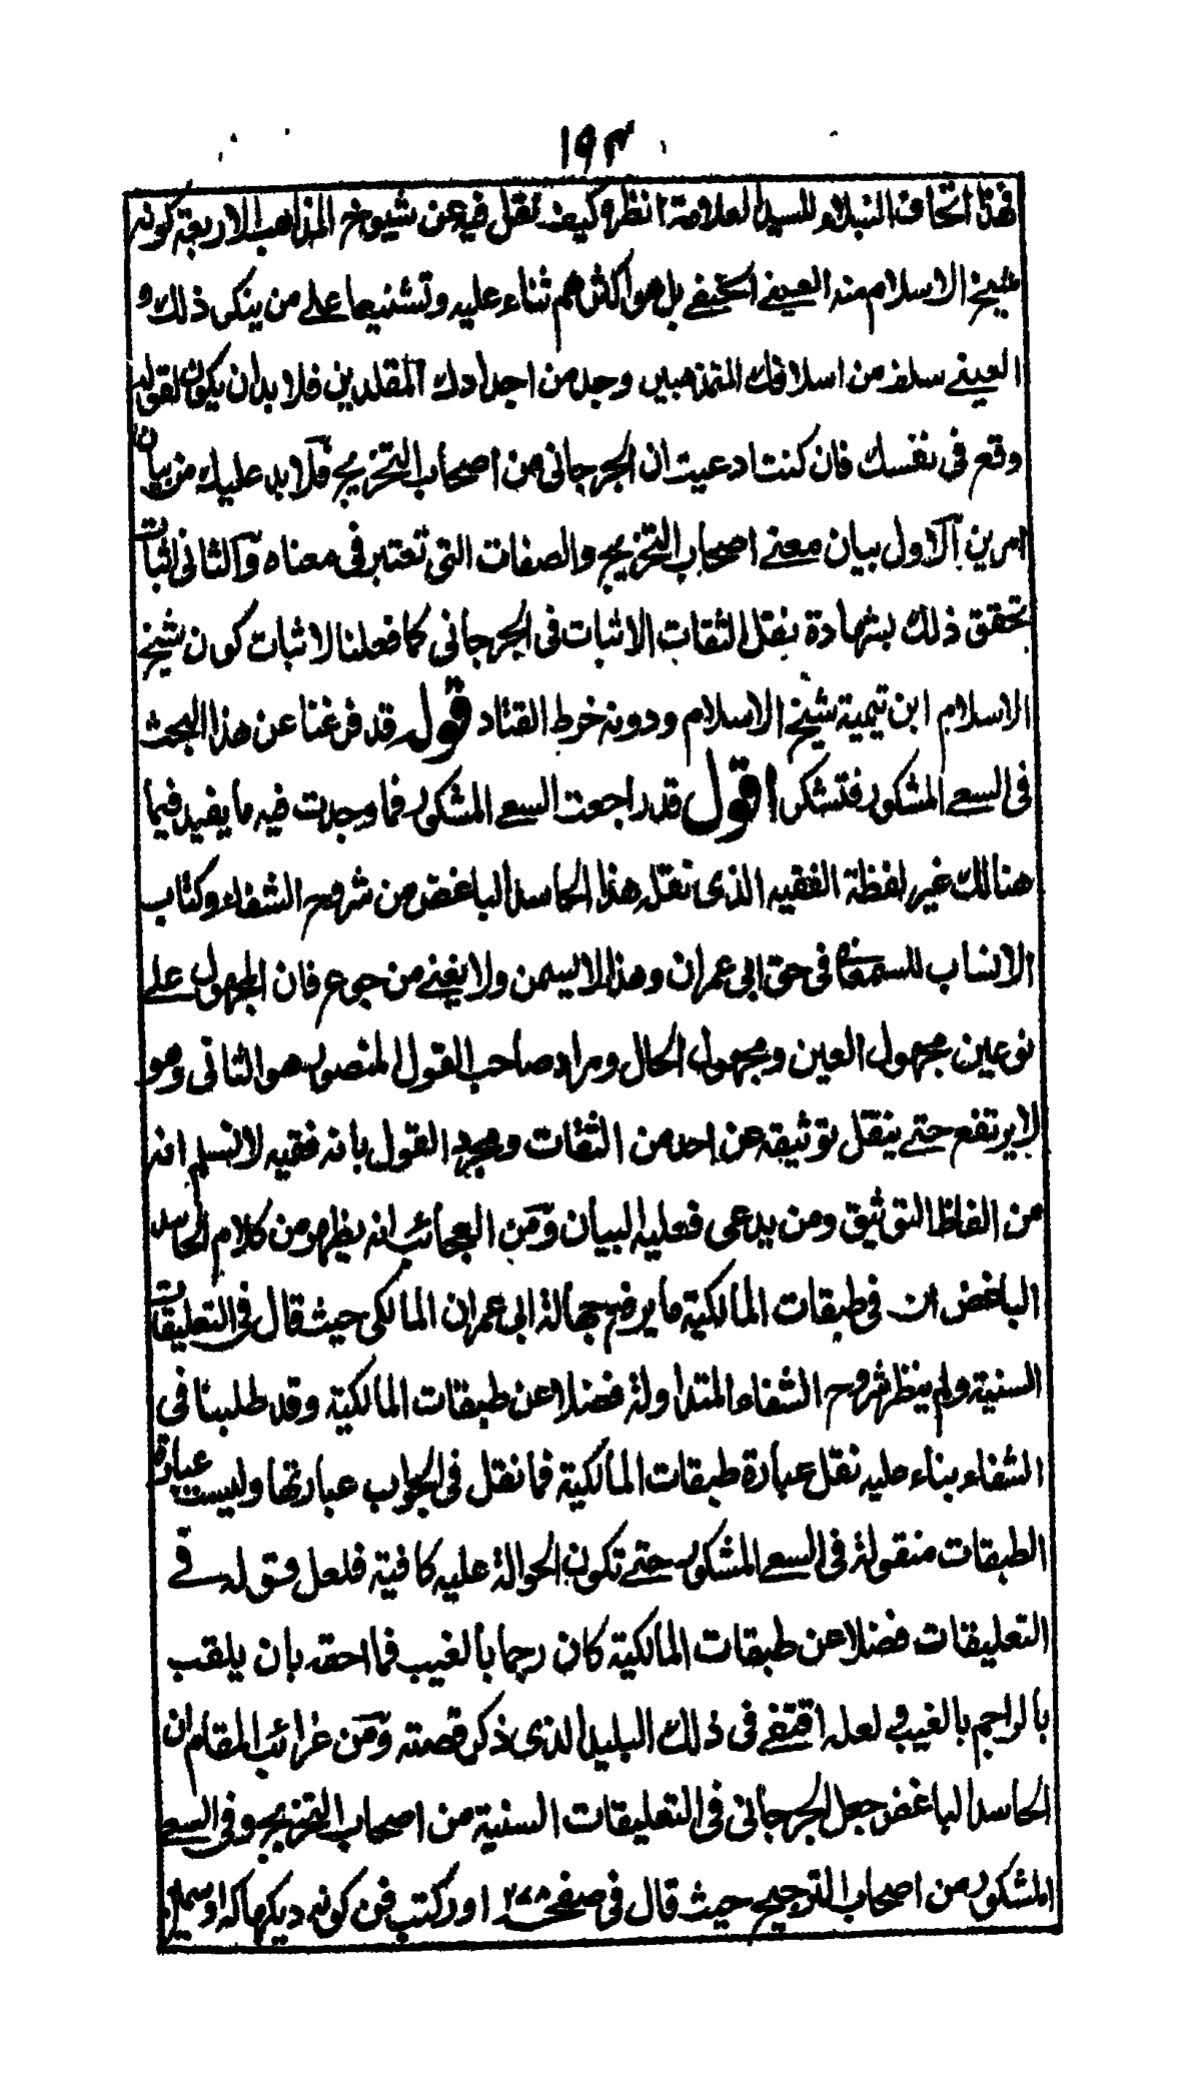 ١٩٣
فهذا اتحاف النبلاء للسيد العلامة انظره كيف نقل فيه عن شيوخ المذاهب الاربعة كونه
شيخ الاسلام منه العيني الحنفي بل هو اكثرهم ثناء عليه وتشنيعا على من ينكر ذلك و
العيني سلف من اسلافك المتمذهبين وجد من اجدادك المقلدين فلا بد ان يكون لقوله
وقع في نفسك فان كنت ادعيت ان الجرجاني من اصحاب التخريج فلا بد عليك من بيان
امرين الاول بيان معنى اصحاب التخريج والصفات التي تعتبر في معناه والثاني اثبات
تحقق ذلك بشهادة بنقل الثقات الاثبات في الجرجاني كما فعلنا لاثبات كون شيخ
الاسلام ابن تيمية شيخ الاسلام ودونه خرط القتاد قوله قد فرغنا عن هذا البحث
في السعي المشكور فتشكر اقول قد راجعت السعي المشكور فما وجدت فيه ما يفيد فيما
هنالك غير لفظة الفقيه الذي نقله هذا الحاسد الباغض من شروح الشفاء وكتاب
الانساب للسمعاني في حق ابي عمران وهذا لا يسمن ولا يغني من جوع فان المجهول على
نوعين مجهول العين ومجهول الحال ومراد صاحب القول المنصور هو الثاني وهو
لا يرتفع حتى ينقل توثيقه عن احد من الثقات ومجرد القول بانه فقيه لا نسلم انه
من الفاظ التوثيق ومن يدعي فعليه البيان ومن العجائب انه يظهر من كلام الحاسد
الباغض ان في طبقات المالكية ما يرفع جهالة ابي عمران المالكي حيث قال في التعليقات
السنية ولم ينظر شروح الشفاء المتداولة فضلا عن طبقات المالكية وقد طلبنا في
الشفاء بناء عليه نقل عبارة طبقات المالكية فما نقل في الجواب عبارتها وليست عبارة
الطبقات منقولة في السعي المشكور حتى تكون الحوالة عليه كافية فلعل قوله في
التعليقات فضلا عن طبقات المالكية كان رجما بالغيب فما احقه بان يلقب
بالراجم بالغيب ولعله اقتفى في ذلك البليد الذي ذكر قصته ومن غرائب المقام ان
الحاسد الباغض جعل الجرجاني في التعليقات السنية من اصحاب التخريج وفي السعي
المشكور من اصحاب الترجيح حيث قال في صفحة اور كتب فن کو نہ دیکھا کہ اوسمین